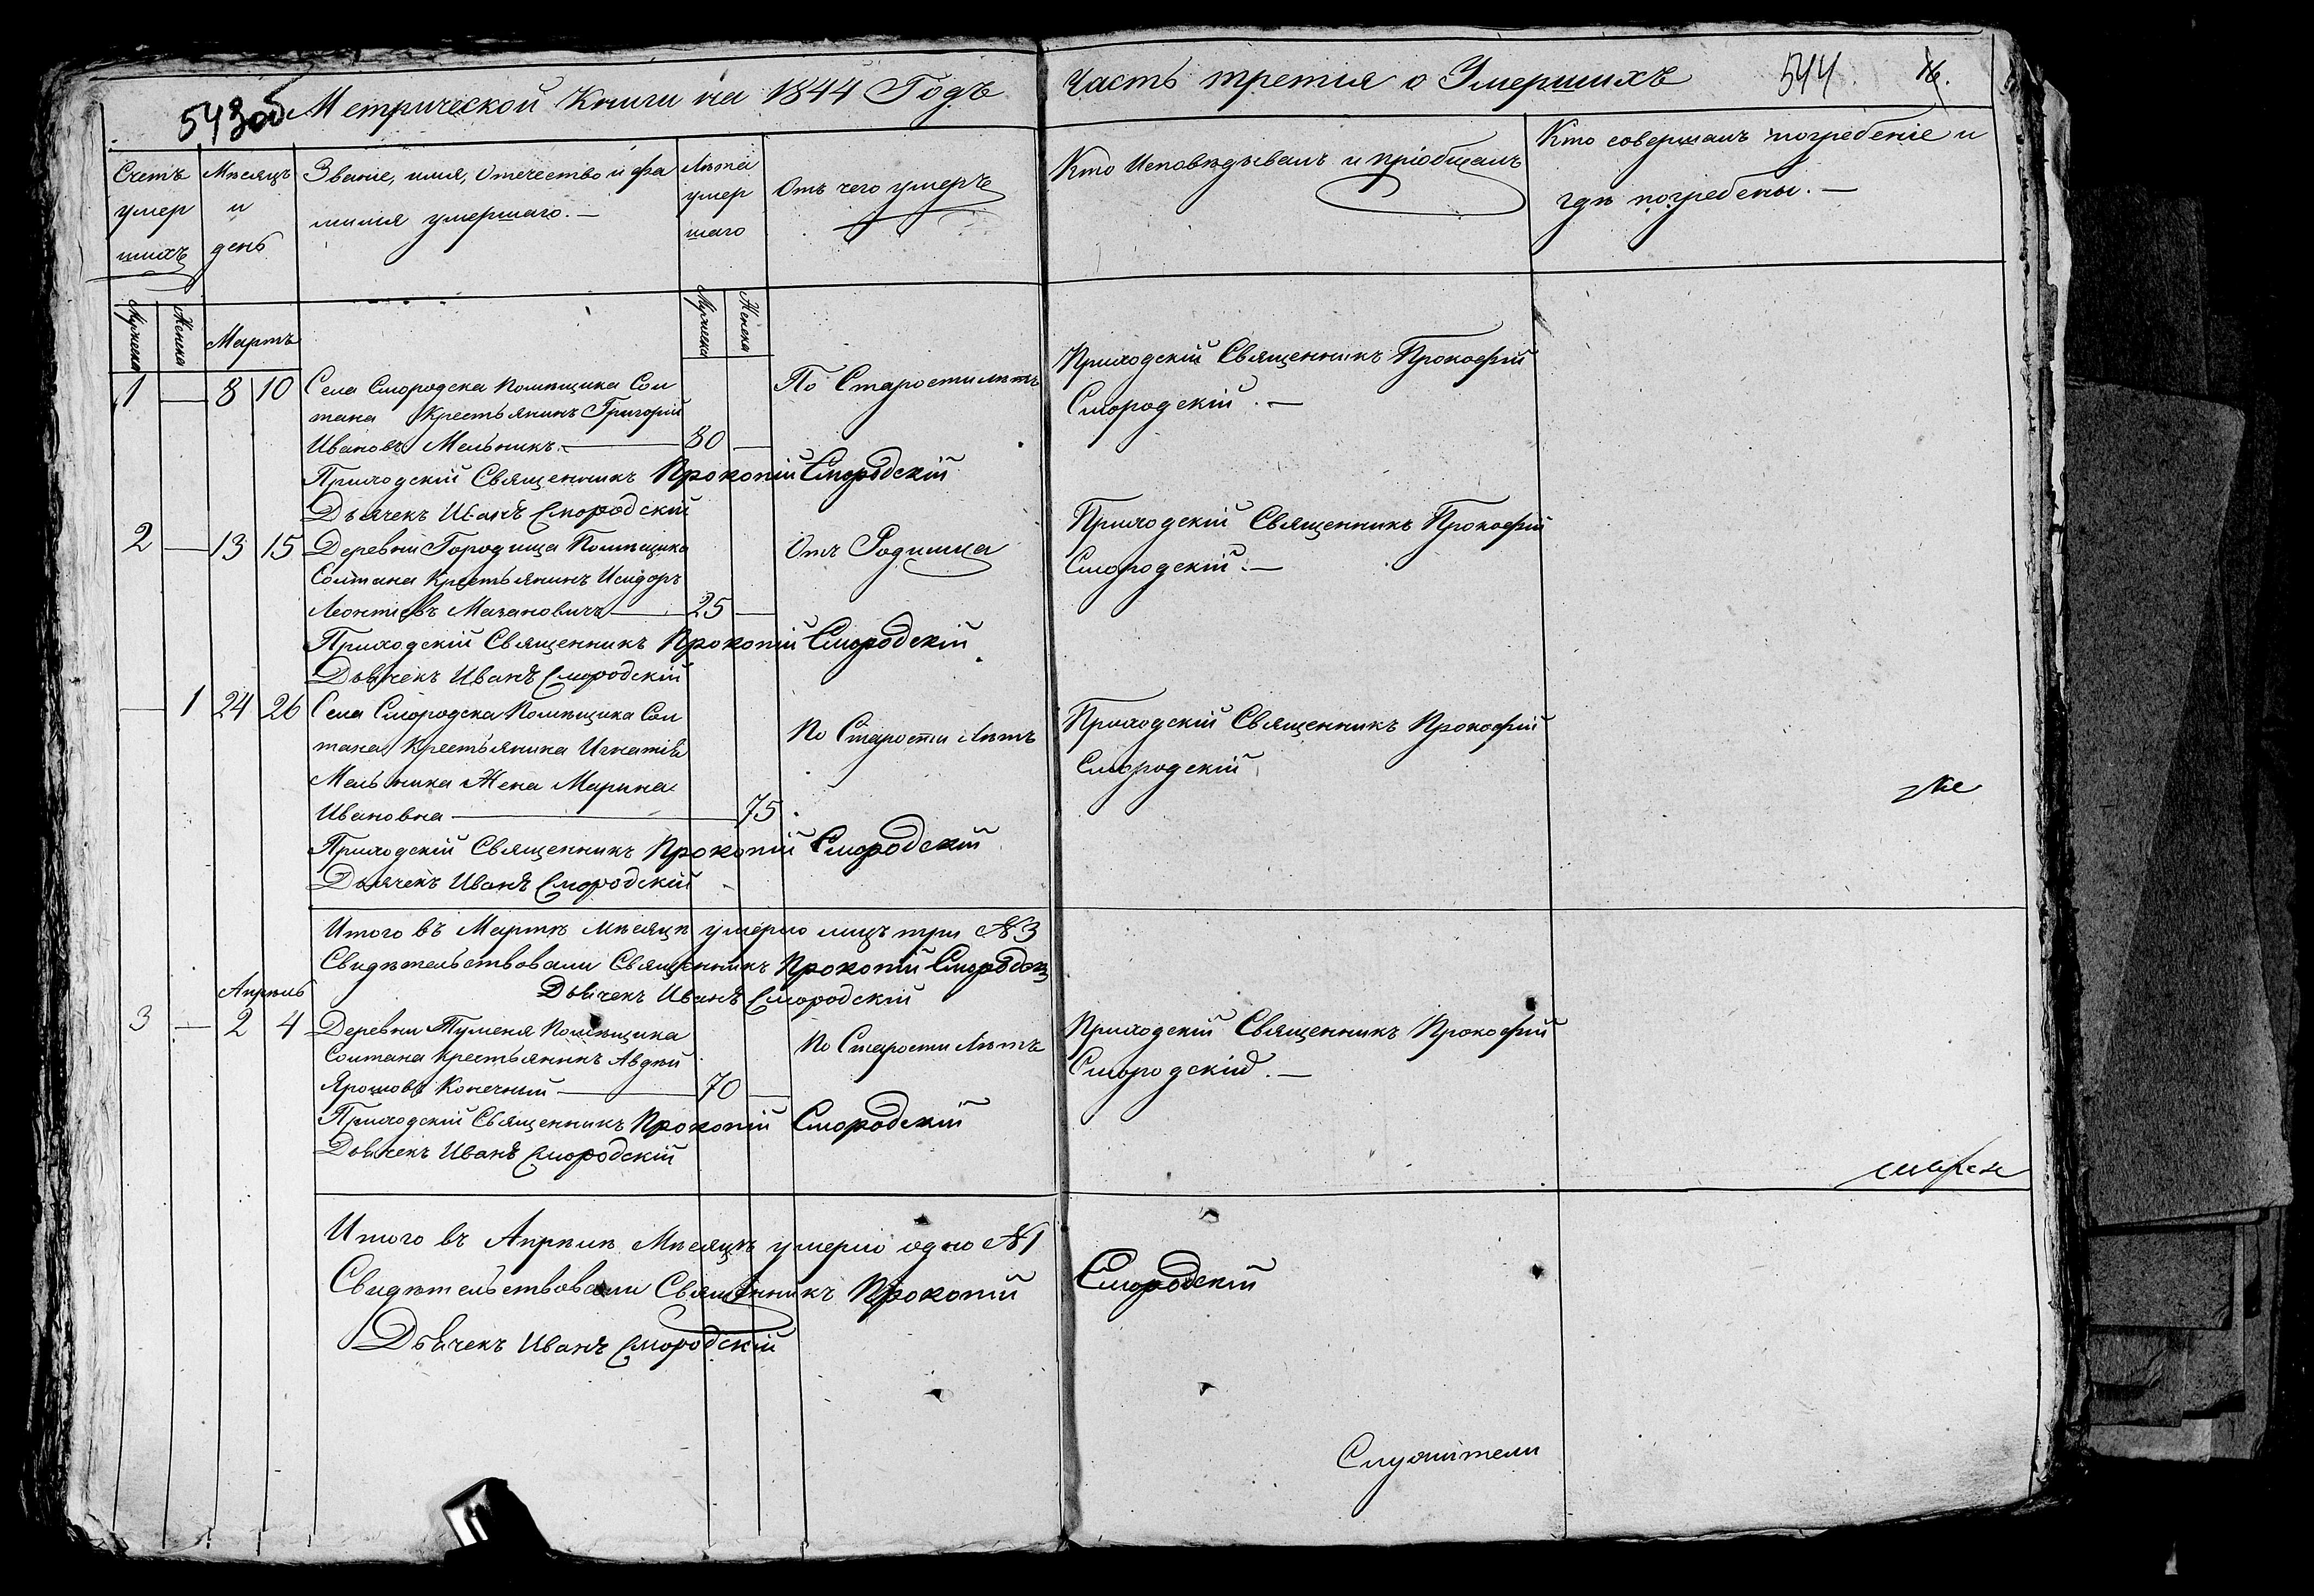 543об Метрической Книги на 1844 Годъ
Часть третия о Умершихъ 544. 16.
Счетъ умер шихъ
Мѣсяцъ и день
Званіе, имя, отечество и фа
милія умершаго. —
Лѣта умер шаго
Отъ чего умеръ
Кто Исповѣдывалъ и пріобщалъ
Кто совершалъ погребеніе и
гдѣ погребены. —
Мужеска Женска Мартъ Мужеска Женска
1 — 8 10 Села Смородска Помѣщика Сол
тана Крестьянинъ Григорій
Ивановъ Мельникъ. — 80 —
По Старости лѣтъ
Приходскій Священникъ Прокофій
Смородскій. —
Приходскій Священникъ Прокопій Смородскій
Дьячекъ Иванъ Смородскій
2 — 13 15 Деревни Городища Помѣщика
Солтана Крестьянинъ Исидоръ
Леонтіевъ Мазановичъ — 25 —
Отъ Родимца
Приходскій Священникъ Прокофій
Смородскій. —
Приходскій Священникъ Прокопій Смородскій
Дьячекъ Иванъ Смородскій
— 1 24 26 Села Смородска Помѣщика Сол
тана Крестьянина Игнатія
Мельника Жена Марина
Ивановна — 75
По Старости Лѣтъ
Приходскій Священникъ Прокофій
Смородскій
Приходскій Священникъ Прокопій Смородскій
Дьячекъ Иванъ Смородскій
Итого въ Мартѣ мѣсяцѣ умерло лицъ три №3
Свидѣтельствовали Священникъ Прокопій Смородскі
Дьячекъ Иванъ Смородскій
Апрѣль
3 — 2 4 Деревни Туменя Помѣщика
Солтана крестьянинъ Авдѣй
Ярошовъ Конечный — 70 —
По Старости Лѣтъ
Приходскій Священникъ Прокофій
Смородскій. —
Приходскій Священникъ Прокопій Смородскій
Дьячекъ Иванъ Смородскій
Итого въ Апрѣлѣ Мѣсяцѣ умерло одно №1
Свидѣтельствовали Священникъ Прокопій Смородскій
Дьячекъ Иванъ Смородскій
Служители